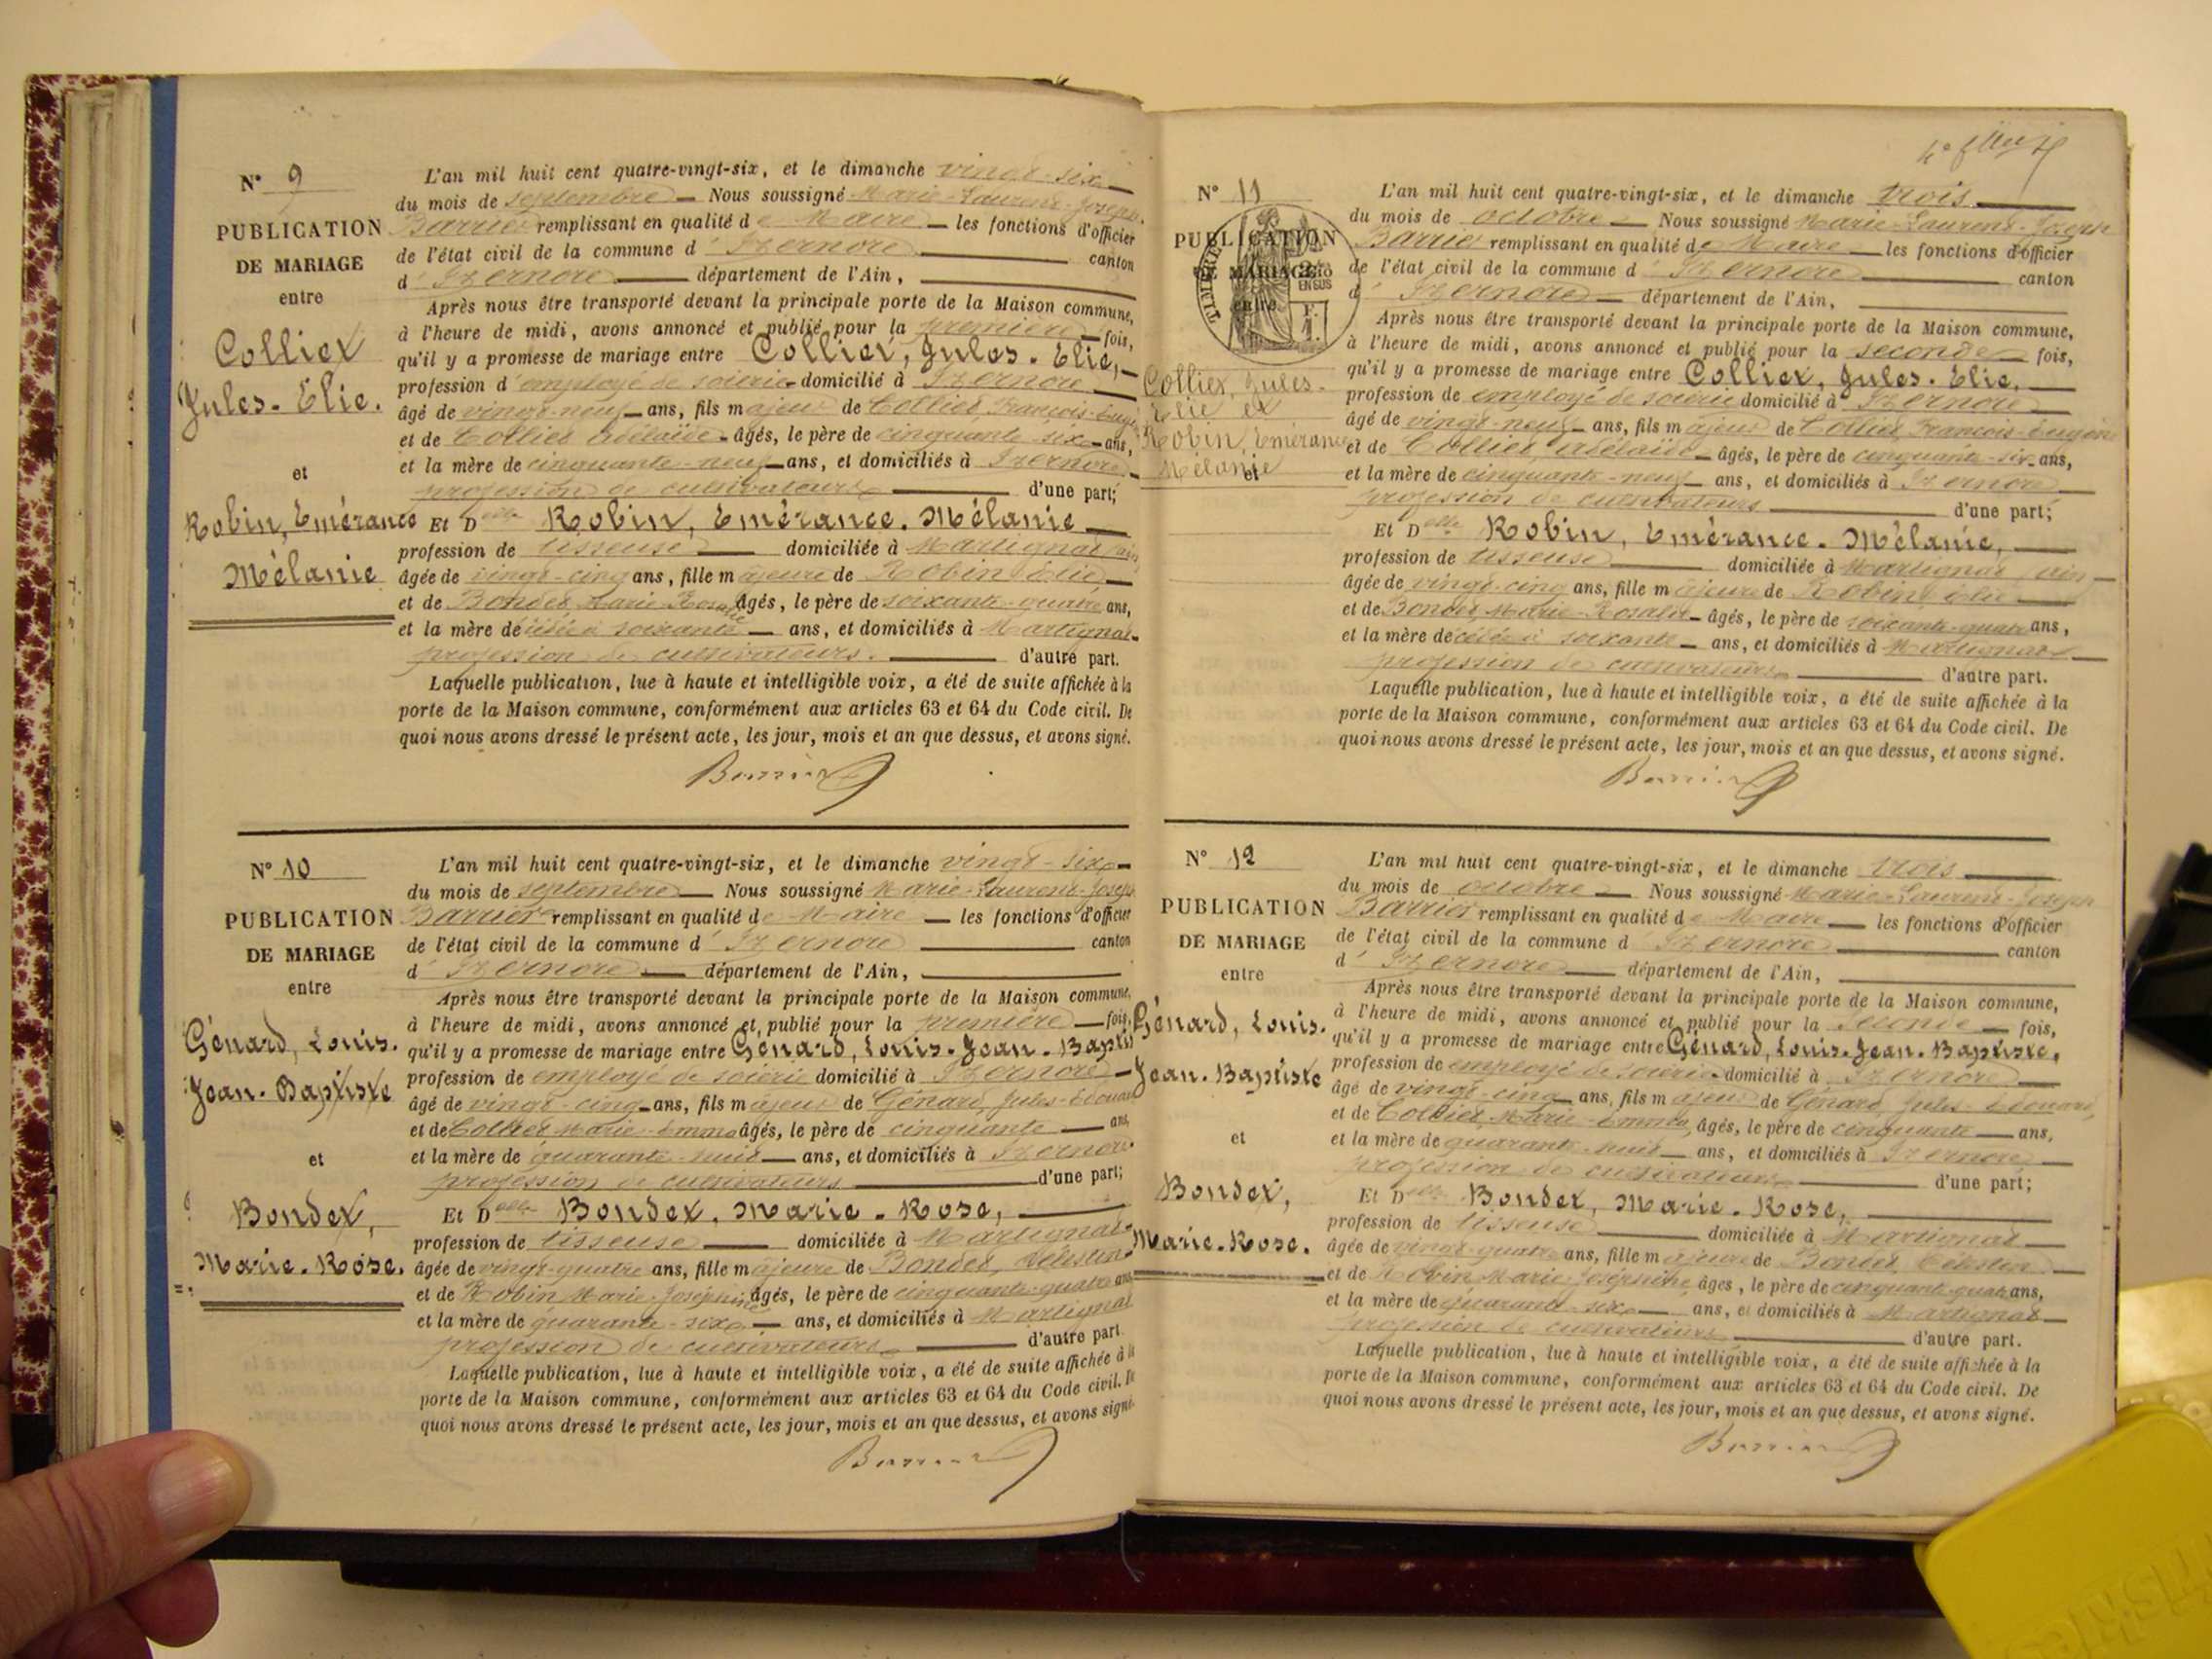 N° 9
PUBLICATION
DE MARIAGE
entre
Colliex
Jules-Elie.
et
Robin, Emérance
Mélanie
L'an mil huit cent quatre-vingt-six, et le dimanche vingt-six
du mois de septembre Nous soussigné Marie-Laurent-Joseph
Barrier remplissant en qualité de Maire les fonctions d'officier
de l'état civil de la commune d'Izernore canton
d'Izernore département de l'Ain,
Après nous être transporté devant la principale porte de la Maison commune,
à l'heure de midi, avons annoncé et publié pour la première fois,
qu'il y a promesse de mariage entre Colliex, Jules-Elie,
profession d'employé de soierie domicilié à Izernore
âgé de vingt-neuf ans, fils majeur de Colliex François-Eugène
et de Colliex Adélaïde âgés, le père de cinquante-six ans,
et la mère de cinquante-neuf ans, et domiciliés à Izernore
profession de cultivateurs d'une part;
Et Delle Robin, Emérance-Mélanie
profession de tisseuse domiciliée à Martignat (ain)
âgée de vingt-cinq ans, fille majeure de Robin Elie
et de Bondet Marie-Rosalie âgés, le père de soixante-quatre ans,
et la mère décédée à soixante ans, et domiciliés à Martignat
profession de cultivateurs. d'autre part.
Laquelle publication, lue à haute et intelligible voix, a été de suite affichée à la
porte de la Maison commune, conformément aux articles 63 et 64 du Code civil. De
quoi nous avons dressé le présent acte, les jour, mois et an que dessus, et avons signé.
Barrier
N° 10
PUBLICATION
DE MARIAGE
entre
Génard, Louis.
Jean-Baptiste
et
Bondet,
Marie-Rose.
L'an mil huit cent quatre-vingt-six, et le dimanche vingt-six
du mois de septembre Nous soussigné Marie-Laurent-Joseph
Barrier remplissant en qualité de Maire les fonctions d'officier
de l'état civil de la commune d'Izernore canton
d'Izernore département de l'Ain,
Après nous être transporté devant la principale porte de la Maison commune,
à l'heure de midi, avons annoncé et publié pour la première fois,
qu'il y a promesse de mariage entre Génard, Louis-Jean-Baptis
profession de employé de soierie domicilié à Izernore
âgé de vingt-cinq ans, fils majeur de Génard, Jules-Edouard
et de Colliex Marie-Emma âgés, le père de cinquante ans,
et la mère de quarante-huit ans, et domiciliés à Izernore
profession de cultivateurs d'une part;
Et Delle Bondet, Marie-Rose,
profession de tisseuse domiciliée à Martignat
âgée de vingt-quatre ans, fille majeure de Bondet, Célestin
et de Robin Marie-Joséphine âgés, le père de cinquante-quatre ans
et la mère de quarante-six ans, et domiciliés à Martignat
profession de cultivateurs d'autre part.
Laquelle publication, lue à haute et intelligible voix, a été de suite affichée à la
porte de la Maison commune, conformément aux articles 63 et 64 du Code civil. De
quoi nous avons dressé le présent acte, les jour, mois et an que dessus, et avons signé.
Barrier
N° 11
PUBLICATION
DE MARIAGE
entre
TIMBRE
EN SUS
Colliex, Jules-
Elie et
Robin, Emérance
Mélanie
et
L'an mil huit cent quatre-vingt-six, et le dimanche trois
du mois de octobre Nous soussigné Marie-Laurent-Joseph
Barrier remplissant en qualité de Maire les fonctions d'officier
de l'état civil de la commune d'Izernore canton
d'Izernore département de l'Ain,
Après nous être transporté devant la principale porte de la Maison commune,
à l'heure de midi, avons annoncé et publié pour la seconde fois,
qu'il y a promesse de mariage entre Colliex, Jules-Elie,
profession de employé de soierie domicilié à Izernore
âgé de vingt-neuf ans, fils majeur de Colliex François-Eugène
et de Colliex, Adélaïde âgés, le père de cinquante-six ans,
et la mère de cinquante-neuf ans, et domiciliés à Izernore
profession de cultivateurs d'une part;
Et Delle Robin, Emérance-Mélanie,
profession de tisseuse domiciliée à Martignat (ain)
âgée de vingt-cinq ans, fille majeure de Robin Elie
et de Bondet, Marie-Rosalie âgés, le père de soixante-quatre ans,
et la mère décédée à soixante ans, et domiciliés à Martignat
profession de cultivateurs d'autre part.
Laquelle publication, lue à haute et intelligible voix, a été de suite affichée à la
porte de la Maison commune, conformément aux articles 63 et 64 du Code civil. De
quoi nous avons dressé le présent acte, les jour, mois et an que dessus, et avons signé.
Barrier
N° 12
PUBLICATION
DE MARIAGE
entre
Génard, Louis.
Jean-Baptiste
et
Bondet,
Marie-Rose.
L'an mil huit cent quatre-vingt-six, et le dimanche trois
du mois de octobre Nous soussigné Marie-Laurent-Joseph
Barrier remplissant en qualité de Maire les fonctions d'officier
de l'état civil de la commune d'Izernore canton
d'Izernore département de l'Ain,
Après nous être transporté devant la principale porte de la Maison commune,
à l'heure de midi, avons annoncé et publié pour la seconde fois,
qu'il y a promesse de mariage entre Génard, Louis-Jean-Baptiste,
profession de employé de soierie domicilié à Izernore
âgé de vingt-cinq ans, fils majeur de Génard, Jules-Edouard,
et de Colliex, Marie-Emma, âgés, le père de cinquante ans,
et la mère de quarante-huit ans, et domiciliés à Izernore
profession de cultivateurs d'une part;
Et Delle Bondet, Marie-Rose,
profession de tisseuse domiciliée à Martignat
âgée de vingt-quatre ans, fille majeure de Bondet, Célestin
et de Robin Marie-Joséphine âgés, le père de cinquante-quatre ans,
et la mère de quarante-six ans, et domiciliés à Martignat
profession de cultivateurs d'autre part.
Laquelle publication, lue à haute et intelligible voix, a été de suite affichée à la
porte de la Maison commune, conformément aux articles 63 et 64 du Code civil. De
quoi nous avons dressé le présent acte, les jour, mois et an que dessus, et avons signé.
Barrier